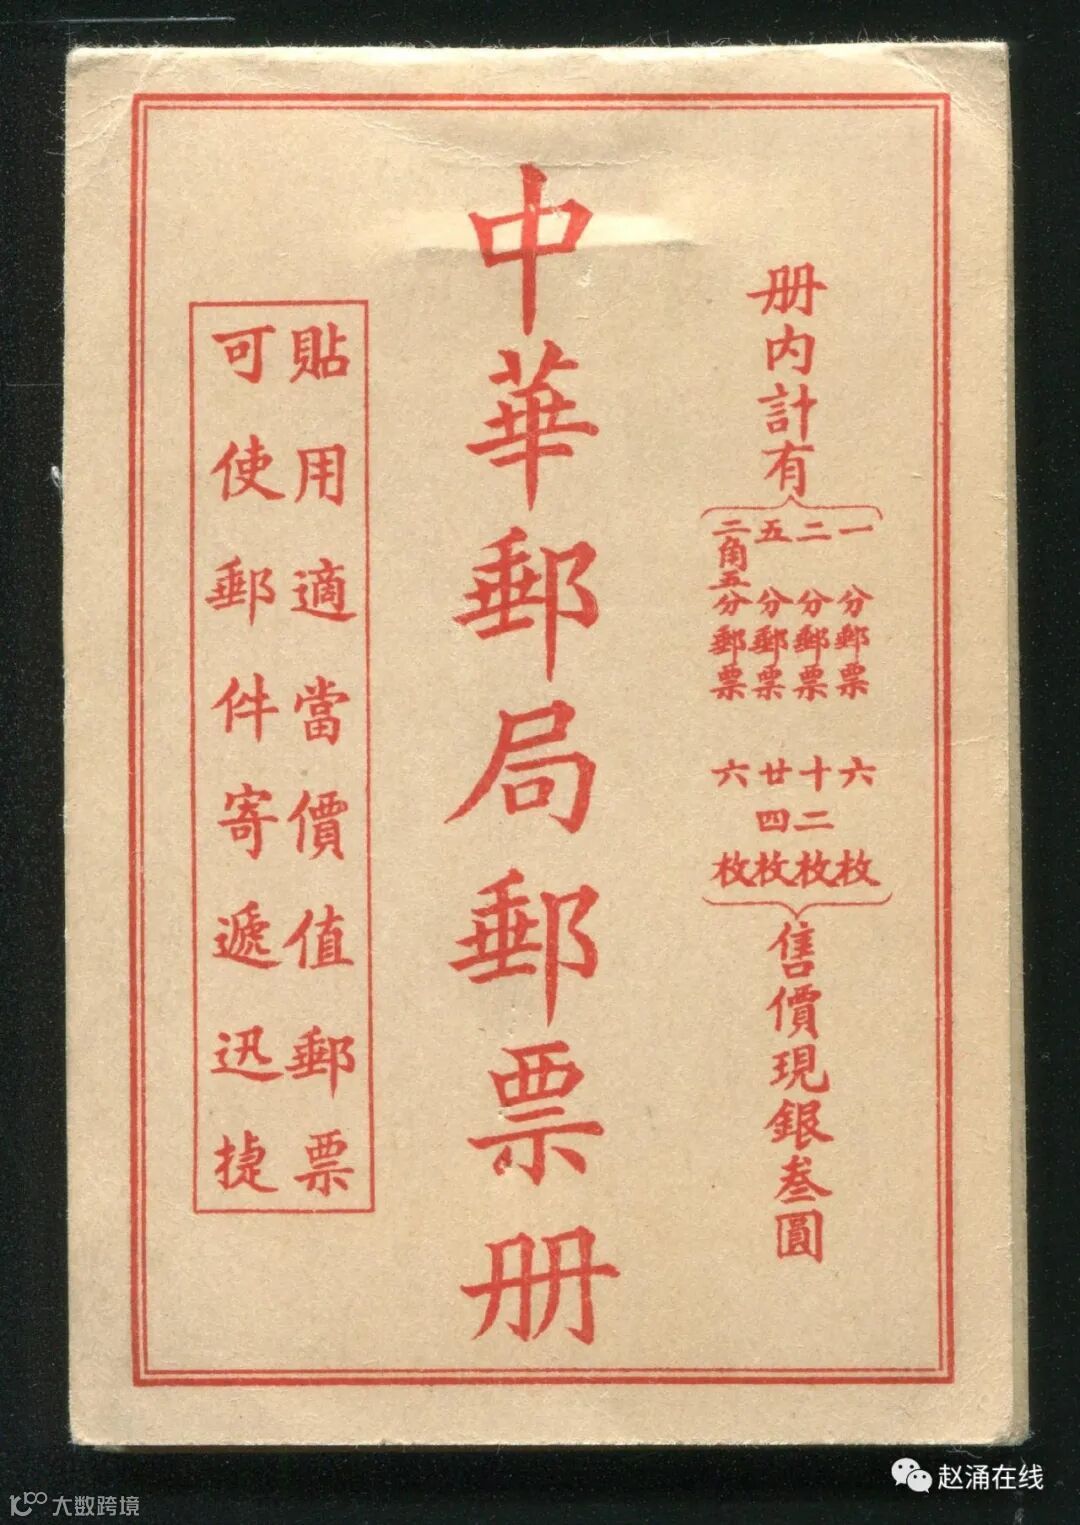 册内計有
一分郵票 六枚
二分郵票 十二枚
五分郵票 廿四枚
二角五分郵票 六枚
售價現銀叁圓
中華郵局郵票册
貼用適當價值郵票
可使郵件寄遞迅捷
赵涌在线
大数跨境